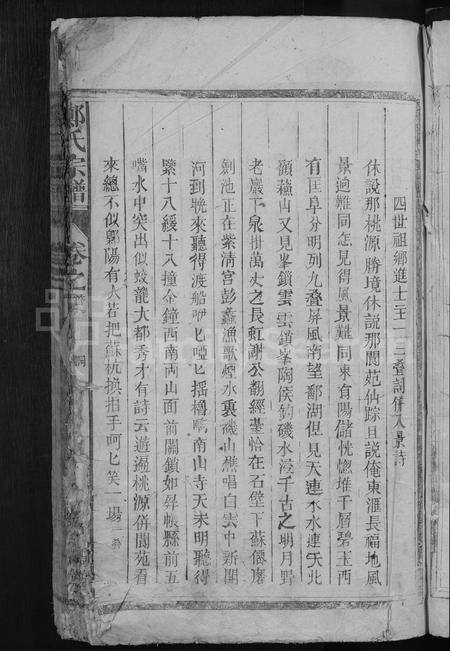 四世祖鄉進士王一二叠詞併八景詩
休說那桃源勝境休說那閬苑仙踪且說俺東滙長福地風
景逈雖同怎見得風景難同東有陽儲恍惚堆千層碧玉西
有匡阜分明列九叠屏風南望鄱湖但見天連水水連天北
顧蘓山又見峯鎖雲雲鎖峯陶侯釣磯水浸千古之明月野
老巖下泉掛萬丈之長虹謝公翻經臺恰在石壁下蘇僊磨
劍池正在紫清宮彭蠡漁歌煙水裏磯山樵唱白雲中新開
河到晚來聽得渡船咿匕啞匕搖櫓聲南山寺天未明聽得
緊十八緩十八撞金鐘西南两山面前關鎖如昇帳縣前五
嘴水中突出似蛟龍大都秀才有詩云遊遍桃源併閬苑看
來總不似鄱陽有人若把蘇杭換拍手呵匕笑一場
鄭氏宗譜
卷之